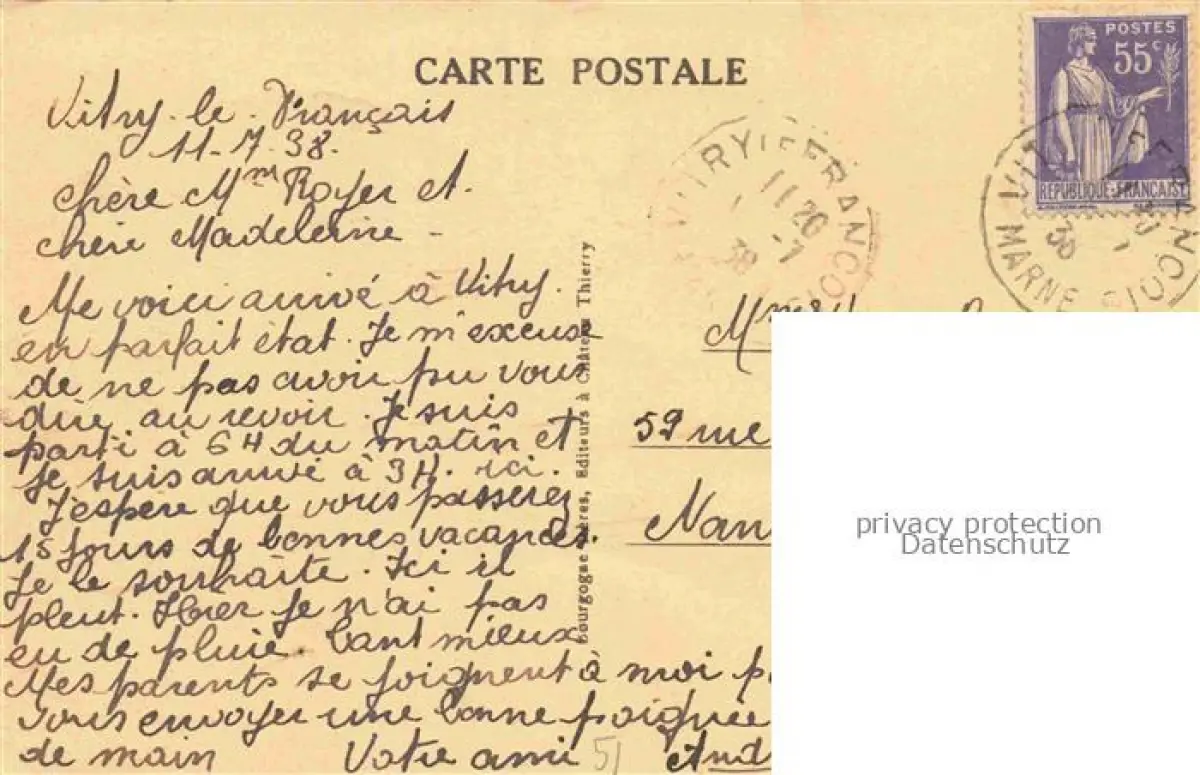 CARTE POSTALE
POSTES
55c
REPUBLIQUE FRANÇAISE
VITRY LE FRANCOIS
11 20
-7
38
MARNE
Vitry-le-Français
11-7-38.
Chère Mme Royer et
chère Madeleine -
Me voici arrivé à Vitry.
en parfait état. Je m'excuse
de ne pas avoir pu vous
dire au revoir. Je suis
parti à 6H du matin et
je suis arrivé à 3H. ici.
J'espère que vous passerez
15 jours de bonnes vacances.
Je le souhaite. Ici il
pleut. Hier je n'ai pas
eu de pluie. Tant mieux
Mes parents se joignent à moi p
vous envoyer une bonne poignée
de main Votre ami And
51
Bourgogne Frères, Editeurs à Château Thierry
59 rue
Nan
privacy protection
Datenschutz